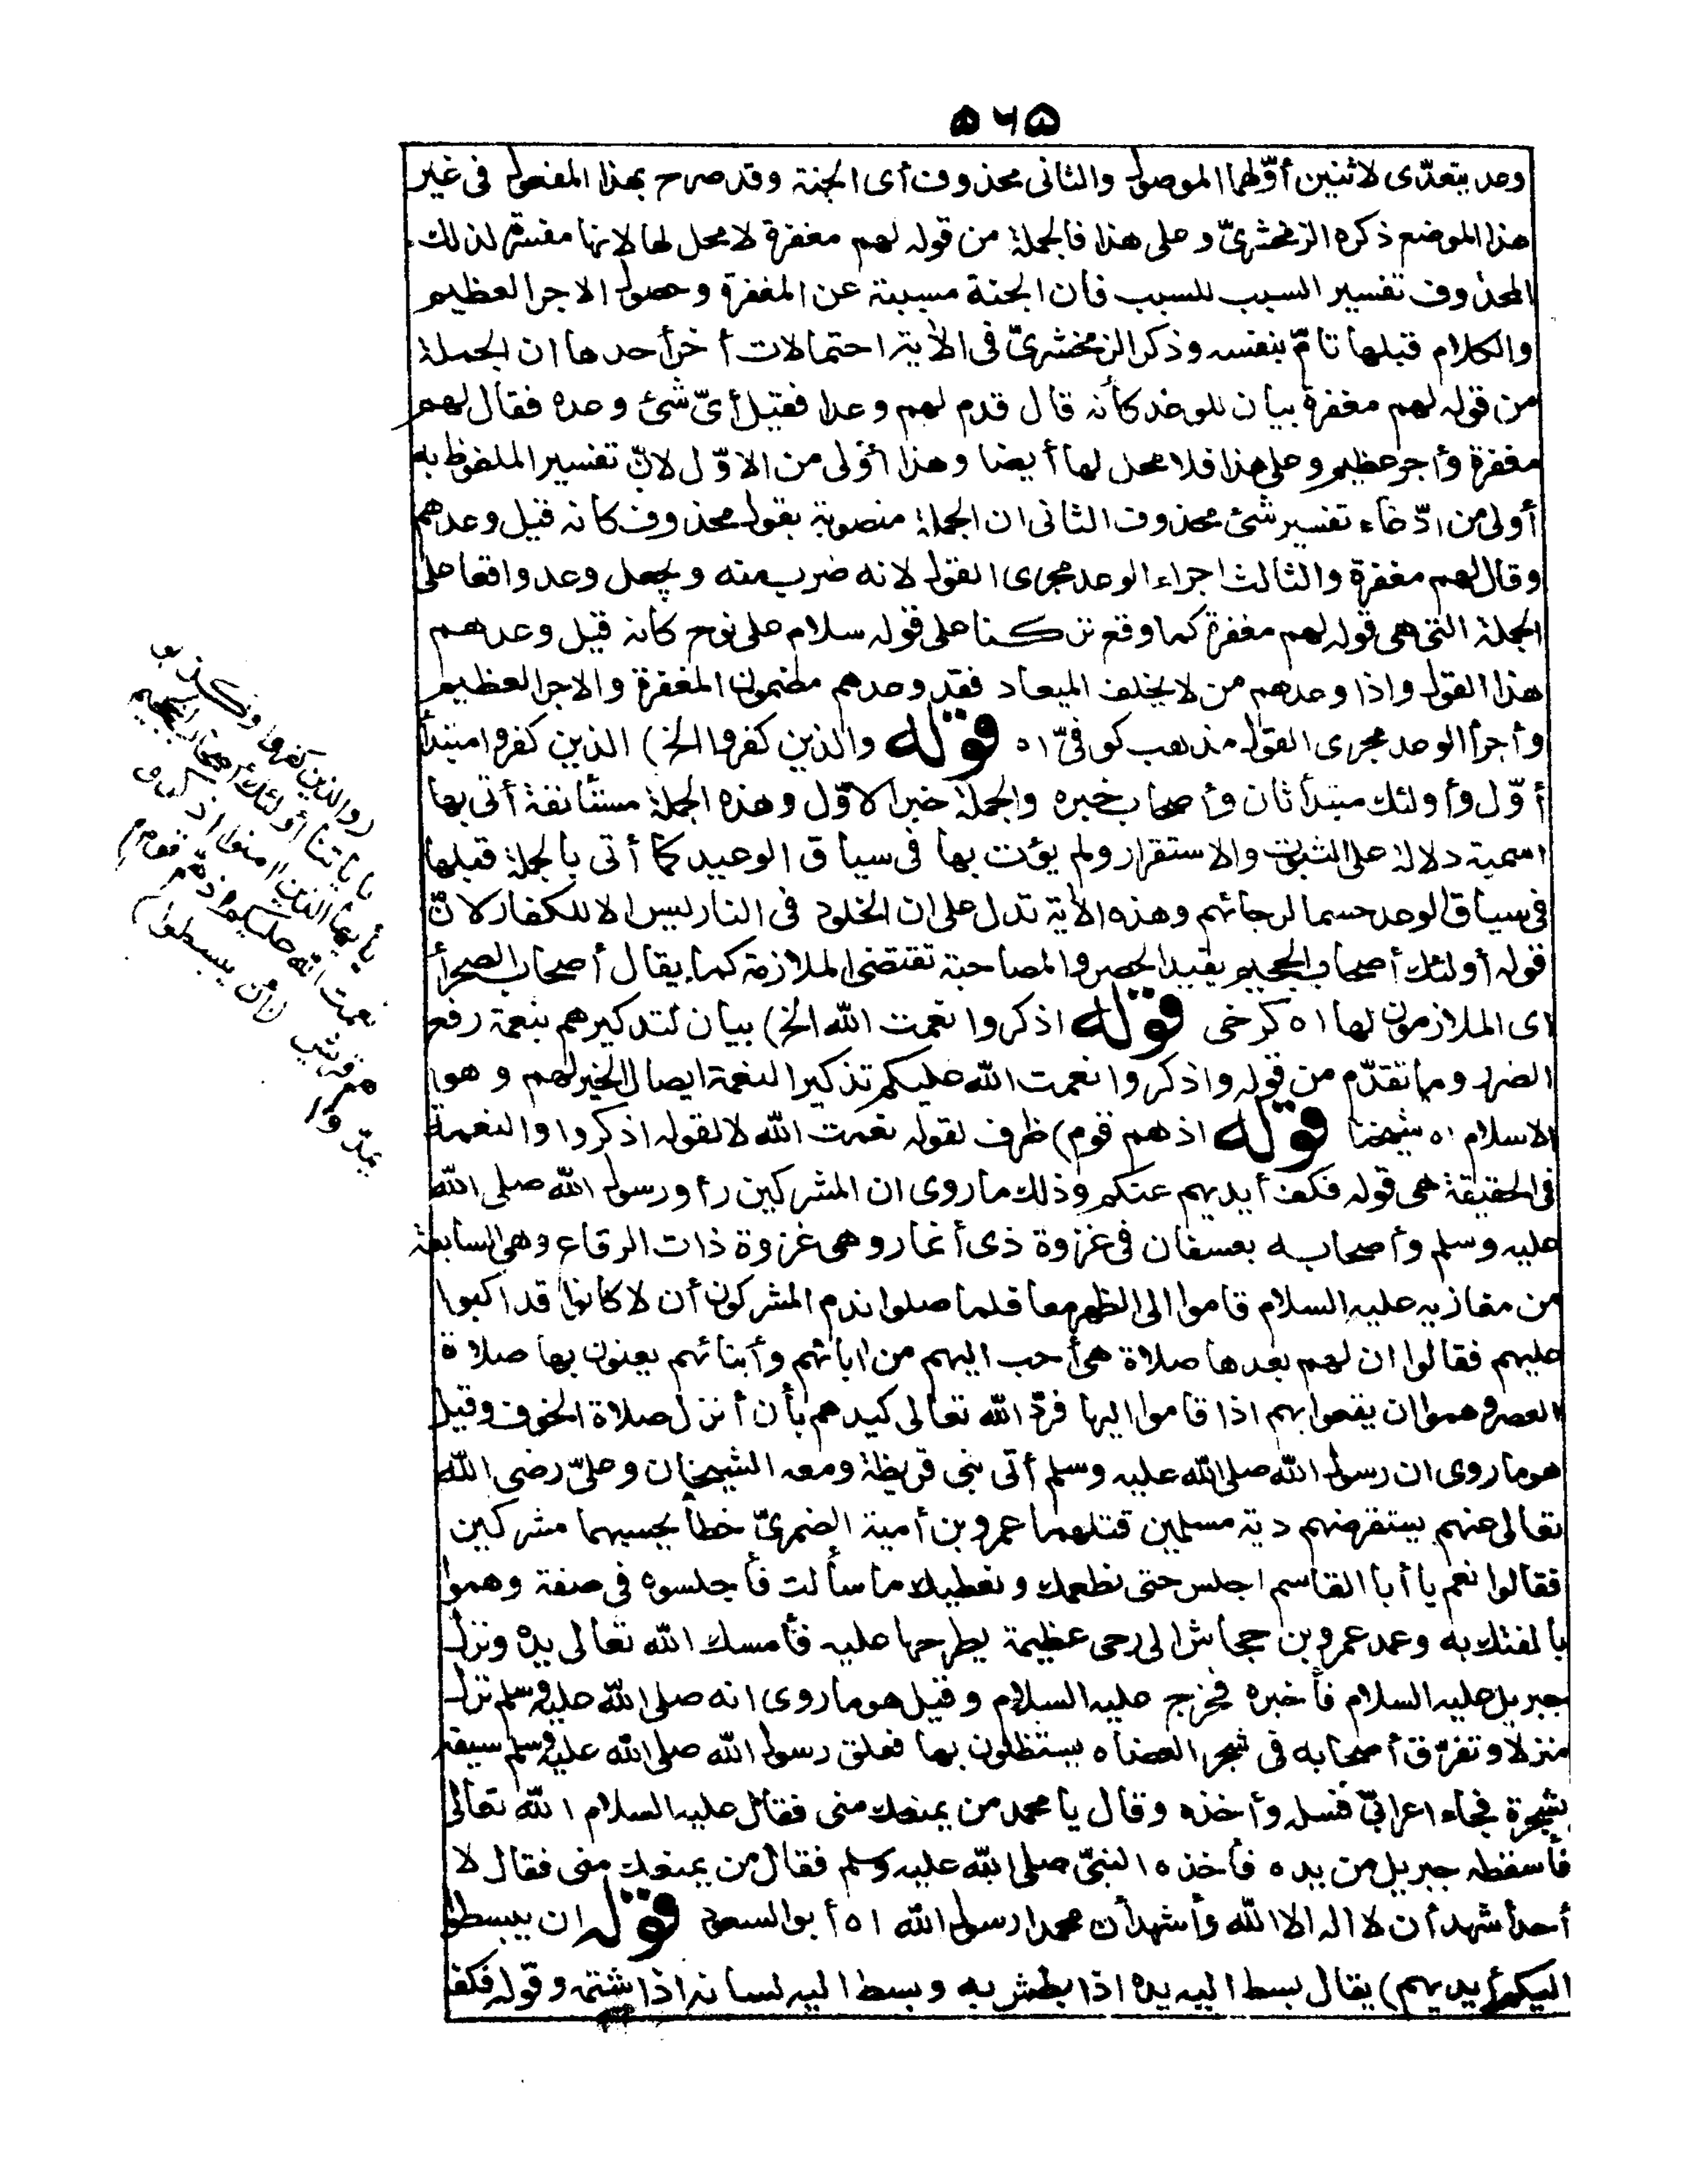 ٥٦٥
وعد يتعدّى لاثنين أوّلهما الموصول والثانى محذوف أى الجنة وقد صرح بهذا المفعول فى غير
هذا الموضع ذكره الزمخشرىّ وعلى هذا فالجملة من قوله لهم مغفرة لا محل لها لانها مفسرة لذلك
المحذوف تفسير السبب للسبب فان الجنة مسببة عن المغفرة وحصول الاجر العظيم
والكلام قبلها تامّ بنفسه وذكر الزمخشرىّ فى الآية احتمالات أخر أحدها ان الجملة
من قوله لهم مغفرة بيان للوعد كأنه قال قدم لهم وعدا فقيل أىّ شئ وعده فقال لهم
مغفرة وأجر عظيم وعلى هذا فلا محل لها أيضا وهذا أولى من الاوّل لانّ تفسير الملفوظ به
أولى من ادّعاء تفسير شئ محذوف الثانى ان الجملة منصوبة بقول محذوف كانه قيل وعدهم
وقال لهم مغفرة والثالث اجراء الوعد مجرى القول لانه ضرب منه ويجعل وعد واقعا على
الجملة التى هى قوله لهم مغفرة كما وقع تركنا على قوله سلام على نوح كانه قيل وعدهم
هذا القول واذا وعدهم من لا يخلف الميعاد فقد وعدهم مضمون المغفرة والاجر العظيم
وأجرأ الوعد مجرى القول مذهب كوفىّ اه قوله والذين كفروا الخ) الذين كفروا مبتدأ
أوّل وأولئك مبتدأ ثان وأصحاب خبره والجملة خبر الاوّل وهذه الجملة مستأنفة أتى بها
اسمية دلالة على الثبوت والاستقرار ولم يؤت بها فى سياق الوعيد كما أتى بالجملة قبلها
فى سياق الوعد حسما لرجائهم وهذه الآية تدل على ان الخلود فى النار ليس الا للكفار لانّ
قوله أولئك أصحاب الجحيم يفيد الحصر والمصاحبة تقتضى الملازمة كما يقال أصحاب الصحرأ
اى الملازمون لها اه كرخى قوله اذكروا نعمت الله الخ) بيان لتذكيرهم بنعمة رفع
الضرر وما تقدّم من قوله واذكروا نعمت الله عليكم تذكير النعمة ايصال الخير لهم وهو
الاسلام اه شيخنا قوله اذ هم قوم) ظرف لقوله نعمت الله لا لقوله اذكروا والنعمة
فى الحقيقة هى قوله فكف أيديهم عنكم وذلك ما روى ان المشركين رأو رسول الله صلى الله
عليه وسلم وأصحابه بعسفان فى غزوة ذى أنمار وهى غزوة ذات الرقاع وهى السابعة
من مغازيه عليه السلام قاموا الى الظهر معا فلما صلوا ندم المشركون أن لا كانوا قد اكبوا
عليهم فقالوا ان لهم بعدها صلاة هى أحب اليهم من اٰبائهم وأبنائهم يعنون بها صلاة
العصر وهموا ان يقعوا بهم اذا قاموا اليها فردّ الله تعالى كيدهم بأن أنزل صلاة الخوف وقيل
هو ما روى ان رسول الله صلى الله عليه وسلم أتى بنى قريظة ومعه الشيخان وعلىّ رضى الله
تعالى عنهم يستقرضهم دية مسلمين قتلهما عمرو بن أمية الضمرىّ خطأ يحسبهما مشركين
فقالوا نعم يا أبا القاسم اجلس حتى نطعمك ونعطيك ما سألت فأجلسوه فى صفة وهموا
بالفتك به وعمد عمرو بن حجاش الى رحى عظيمة يطرحها عليه فأمسك الله تعالى يده ونزل
جبريل عليه السلام فأخبره فخرج عليه السلام وقيل هو ما روى انه صلى الله عليه وسلم نزل
منزلا وتفرّق أصحابه فى شجر العضاه يستظلون بها فعلق رسول الله صلى الله عليه وسلم سيفه
بشجرة فجاء اعرابىّ فسل وأخذه وقال يا محمد من يمنعك منى فقال عليه السلام الله تعالى
فأسقطه جبريل من يده فأخذه النبىّ صلى الله عليه وسلم فقال من يمنعك منى فقال لا
أحد أشهد أن لا اله الا الله وأشهد أن محمدا رسول الله اه أبو السعود قوله ان يبسطوا
اليكم أيديهم) يقال بسط اليه يده اذا بطش به وبسط اليه لسانه اذا شتمه وقوله فكف
(والذين كفروا وكذبوا
بآياتنا أولئك أصحاب الجحيم
يأيها الذين امنوا اذكروا
نعمت الله عليكم اذ هم قوم)
هم قريش (أن يبسطوا)
يمدّوا